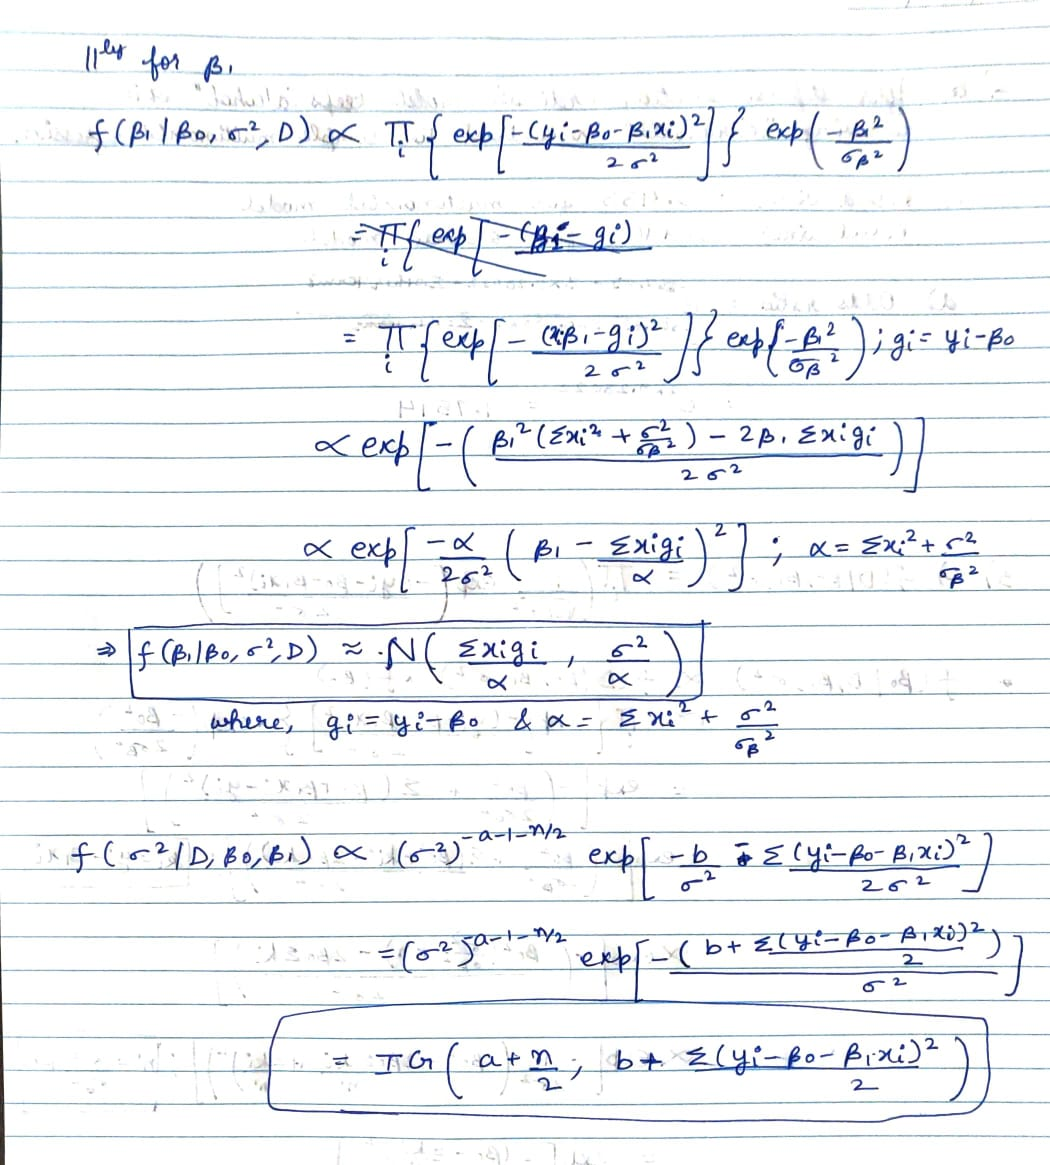 ||ly for β₁
f(β₁ | β₀, σ², D) ∝ ∏ᵢ { exp[ -(yi-β₀-β₁xi)² / 2σ² ] } exp( -β₁² / σβ² )
= ∏ᵢ { exp [ - (βi - gi)
= ∏ᵢ { exp[ - (xiβ₁-gi)² / 2σ² ] } exp( -β₁² / σβ² ) ; gi = yi-β₀
∝ exp[ -( β₁² (Σxi² + σ²/σβ²) - 2β₁ Σxigi / 2σ² ) ]
∝ exp[ -α/2σ² ( β₁ - Σxigi/α )² ] ; α = Σxi² + σ²/σβ²
⇒ f(β₁|β₀, σ², D) ≈ N( Σxigi/α , σ²/α )
where, gi = yi-β₀ & α = Σxi² + σ²/σβ²
f(σ²|D, β₀, β₁) ∝ (σ²)^(-a-1-n/2) exp[ -b/σ² - Σ(yi-β₀-β₁xi)² / 2σ² ]
= (σ²)^(-a-1-n/2) exp[ -( b + Σ(yi-β₀-β₁xi)²/2 ) / σ² ]
= IG( a + n/2 ; b + Σ(yi-β₀-β₁xi)² / 2 )